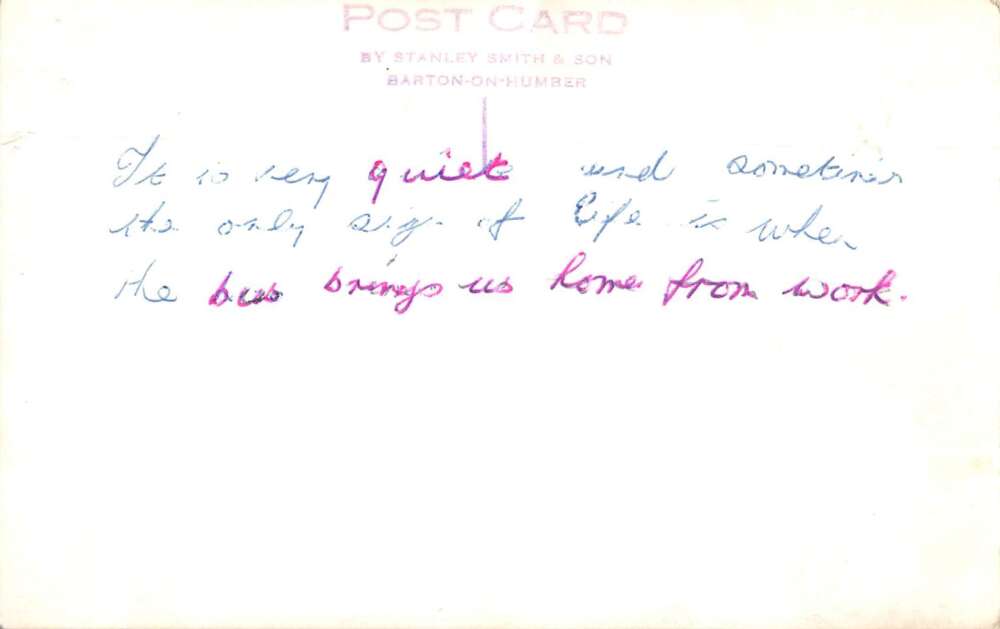 POST CARD
BY STANLEY SMITH & SON
BARTON-ON-HUMBER
It is very quiet and sometimes
the only sign of life is when
the bus brings us home from work.